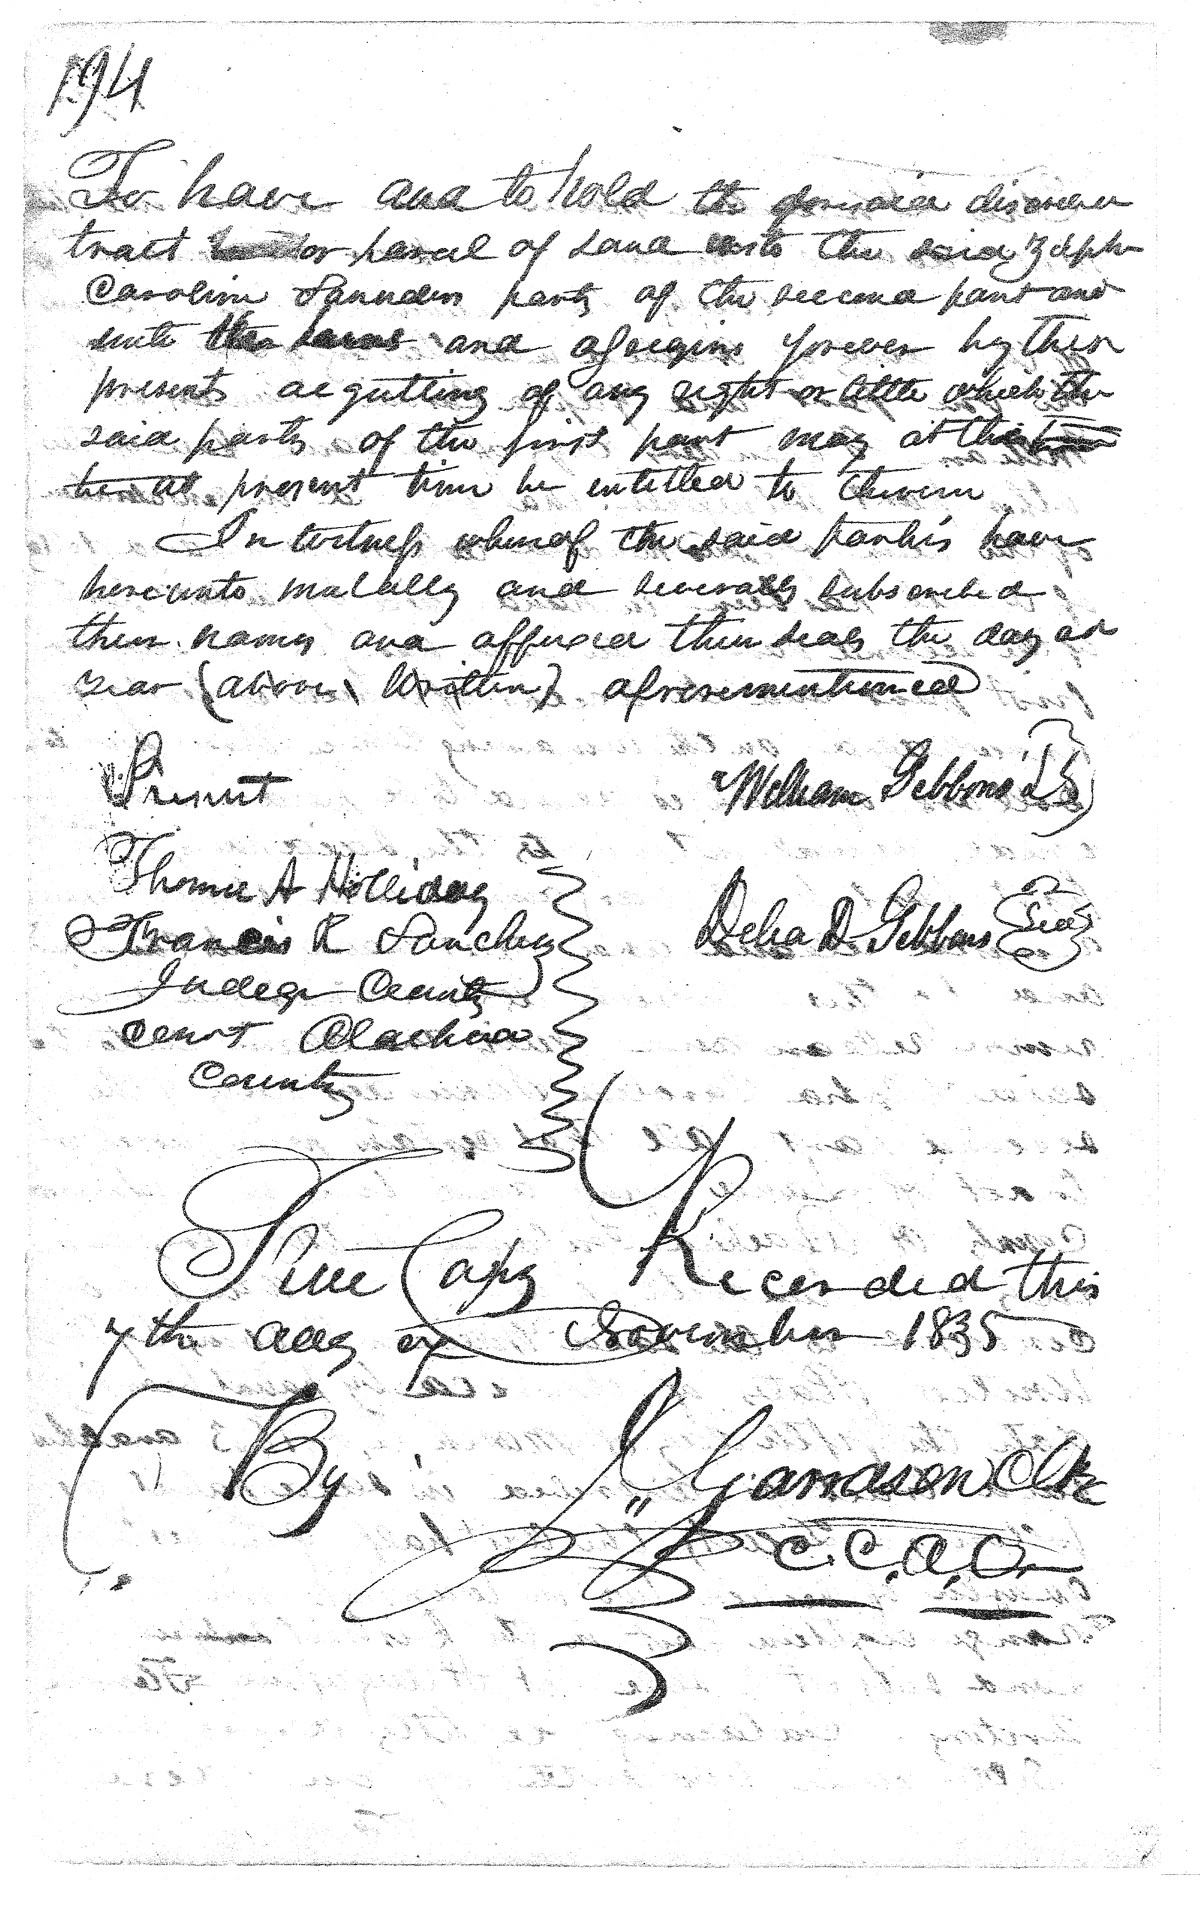 194
To have and to hold the foresaid discover
tract or parcel of Land unto the said Zeph
Caroline Saunders party of the second part and
unto and assigns forever by these
presents acquitting of any right or title which the
said party of the first part may at the
present time be entitled to therein
In witness whereof the said parties have
hereunto mutally and severally subscribed
their names and affixed their seals the day an
year (above written) aforementioned
Present William Gibbons LS
Thomas A Holliday
Francis R Sanchez Delia D Gibbons Seal
Judge County
Court Alachua
County
True Copy Recorded this
7th day of November 1835
By J. Garrason Clk
C. C. A. C.